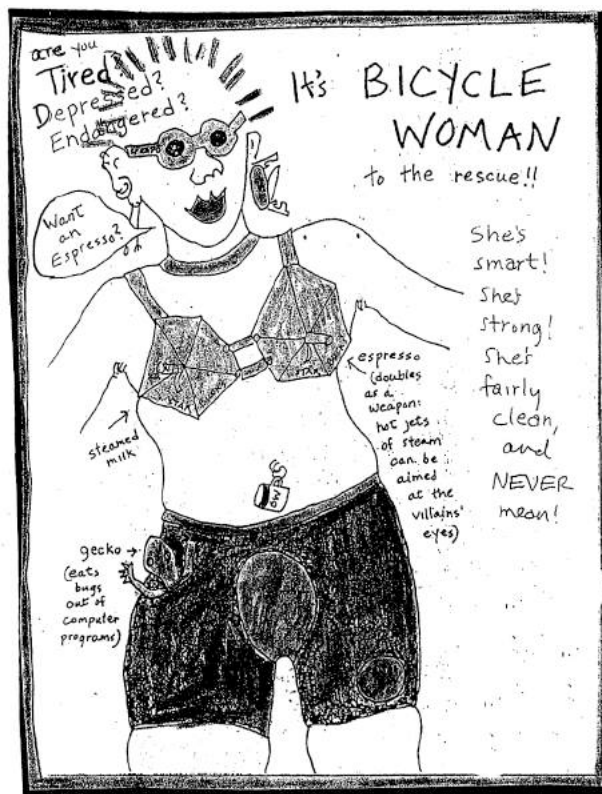 are you
Tired?
Depressed?
Endangered?
It's BICYCLE
WOMAN
to the rescue!!
Want
an
Espresso?
She's
smart!
she's
strong!
She's
fairly
clean,
and
NEVER
mean!
espresso
(doubles
as a
weapon:
hot jets
of steam
can be
aimed
at the
villains'
eyes)
steamed
milk
MO
gecko
(eats
bugs
out of
computer
programs)